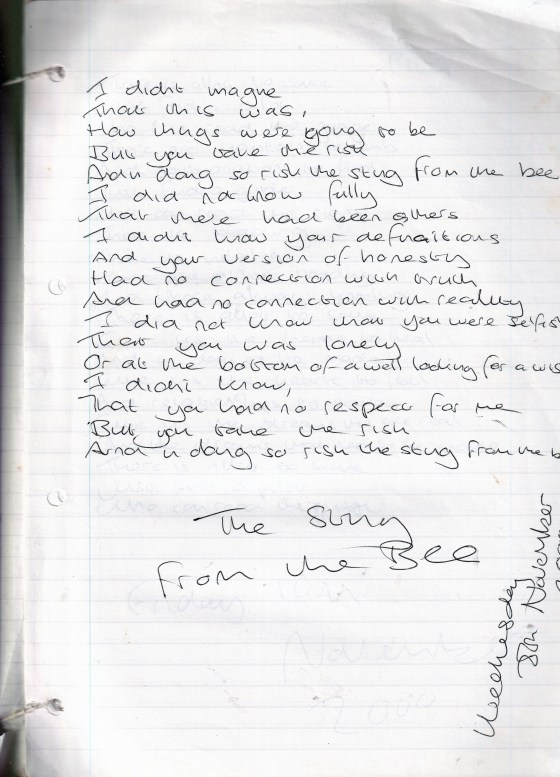 I didnt imagne
That this was,
How things were going to be
But you take the risk
And in doing so risk the sting from the bee
I did not know fully
That there had been others
I didnt know your definaitions
And your version of honesty
Had no connection with truth
And had no connection with reality
I did not know that you were selfis
That you was lonely
Or at the bottom of a well looking for a wis
I didnt know,
That you had no respect for me
But you take the risk
And in doing so risk the sting from the b
The Sting
From the Bee
Wednesday
8th November